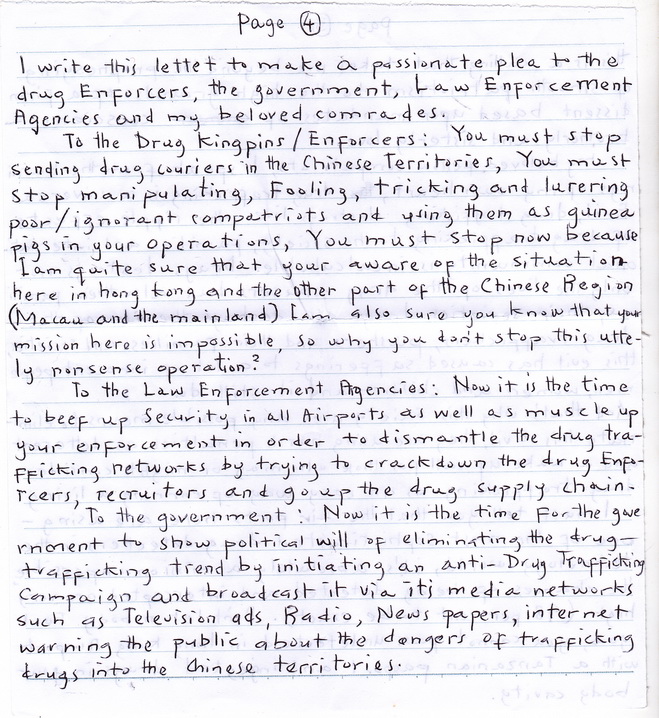 Page 4
I write this lettet to make a passionate plea to the
drug Enforcers, the government, Law Enforcement
Agencies and my beloved comrades.
To the Drug Kingpins/Enforcers: You must stop
sending drug couriers in the Chinese Territories, You must
stop manipulating, Fooling, tricking and lurering
poor/ignorant compatriots and using them as guinea
pigs in your operations, You must stop now because
I am quite sure that your aware of the situation
here in hong kong and the other part of the Chinese Region
(Macau and the mainland) I am also sure you know that your
mission here is impossible, so why you don't stop this utte-
ly nonsense operation?
To the Law Enforcement Agencies: Now it is the time
to beef up Security in all Airports as well as muscle up
your enforcement in order to dismantle the drug tra-
fficking networks by trying to crackdown the drug Enfo-
rcers, recruitors and go up the drug supply chain.
To the government: Now it is the time for the gove
rnment to show political will of eliminating the drug-
trafficking trend by initiating an anti-Drug Trafficking
Campaign and broadcast it via it's media networks
such as Television ads, Radio, News papers, internet
warning the public about the dangers of trafficking
drugs into the Chinese territories.